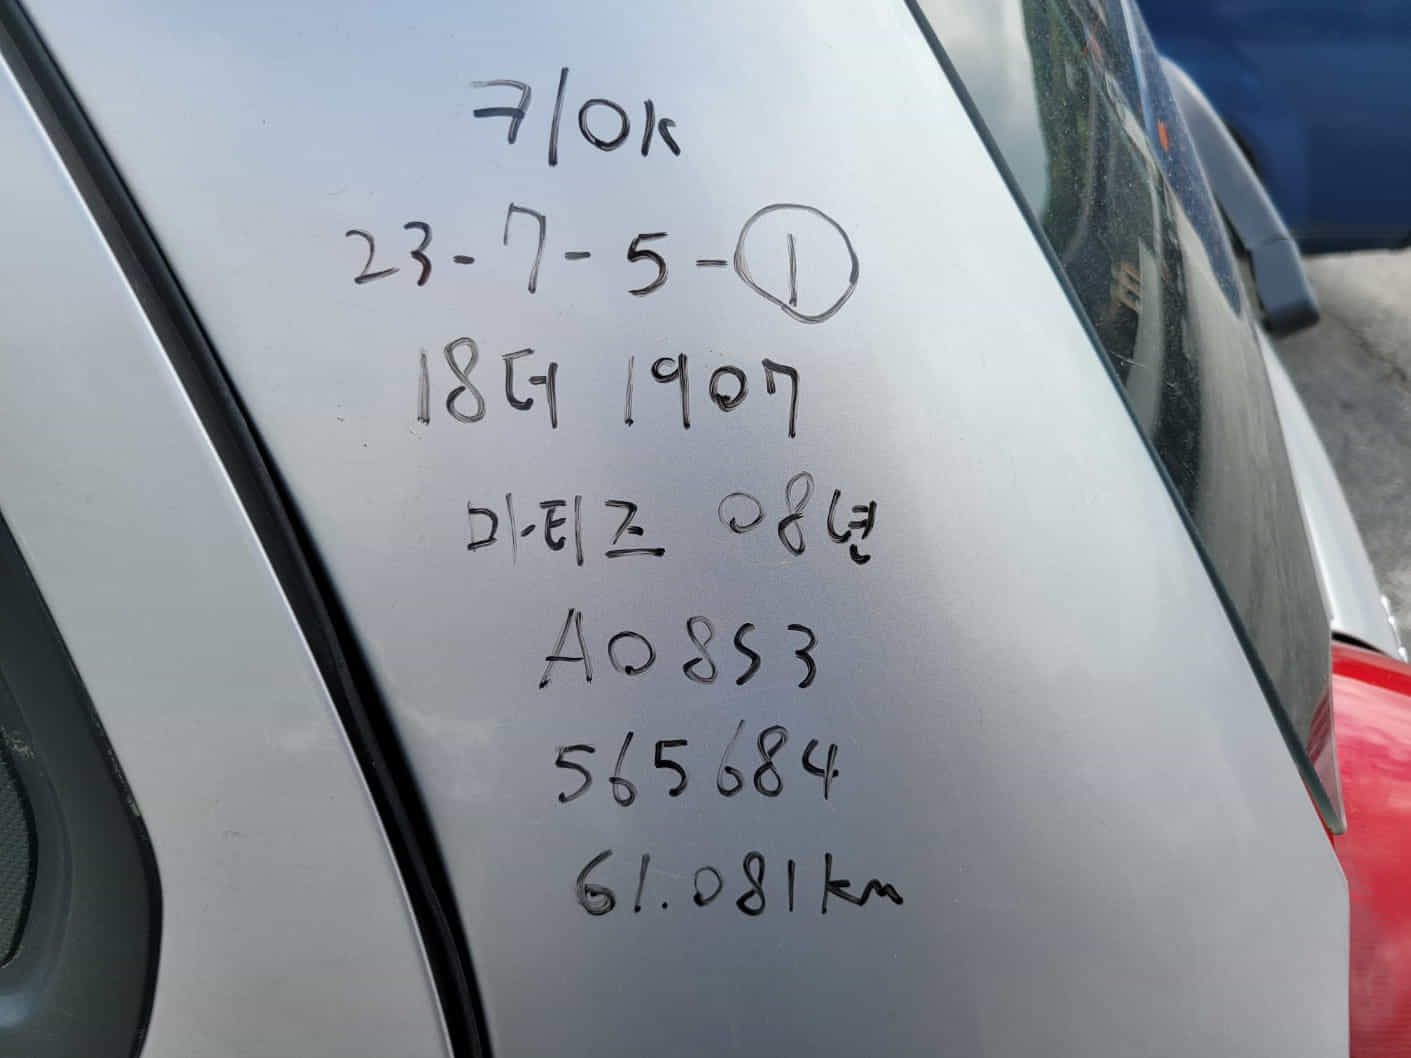 ㅋ/ok
23-7-5-①
18더 1907
마티즈 08년
A0853
565684
61.081km